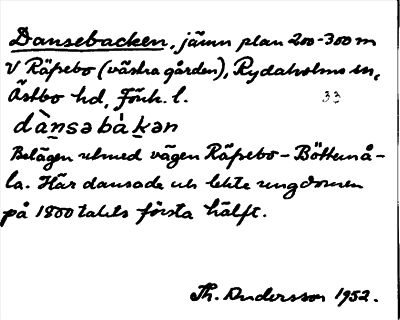 Dansebacken, jämn plan 200-300 m
V Räfsebo (västra gården), Rydaholms sn,
Östbo hd, Jönk. l.
33
dànsəbàkən
Belägen utmed vägen Räfsebo - Böttemå-
la. Här dansade och lekte ungdomen
på 1800 talets första hälft.
Th. Andersson 1952.